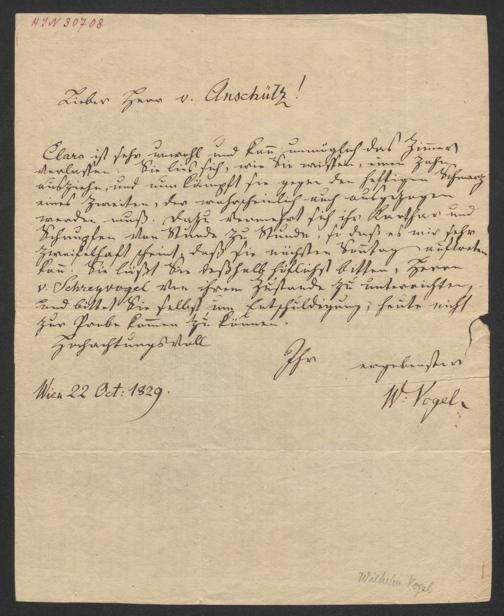 HIN 30708
Lieber Herr v. Anschütz!
Clara ist sehr unwohl und kann unmöglich das Zimmer
verlassen. Sie ließ sich, wie Sie wissen, einen Zahn
ausziehen, und nun kämpft sie gegen den heftigen Schmerz
eines Zweiten, der wahrscheinlich auch ausgezogen
werden muß. Dazu vermehrt sich ihr Karthar und
Schnupfen von Stunde zu Stunde, so daß es mir sehr
zweifelhaft scheint, daß sie nächsten Sonntag auftreten
kann. Sie läßt Sie deßhalb höflichst bitten, Herrn
v. Schreyvogel von ihrem Zustande zu unterrichten,
und bittet Sie selbst um Entschuldigung, heute nicht
zur Probe kommen zu können.
Hochachtungsvoll
Ihr ergebenster
Wien 22 Oct: 1829. W. Vogel.
Wilhelm Vogel